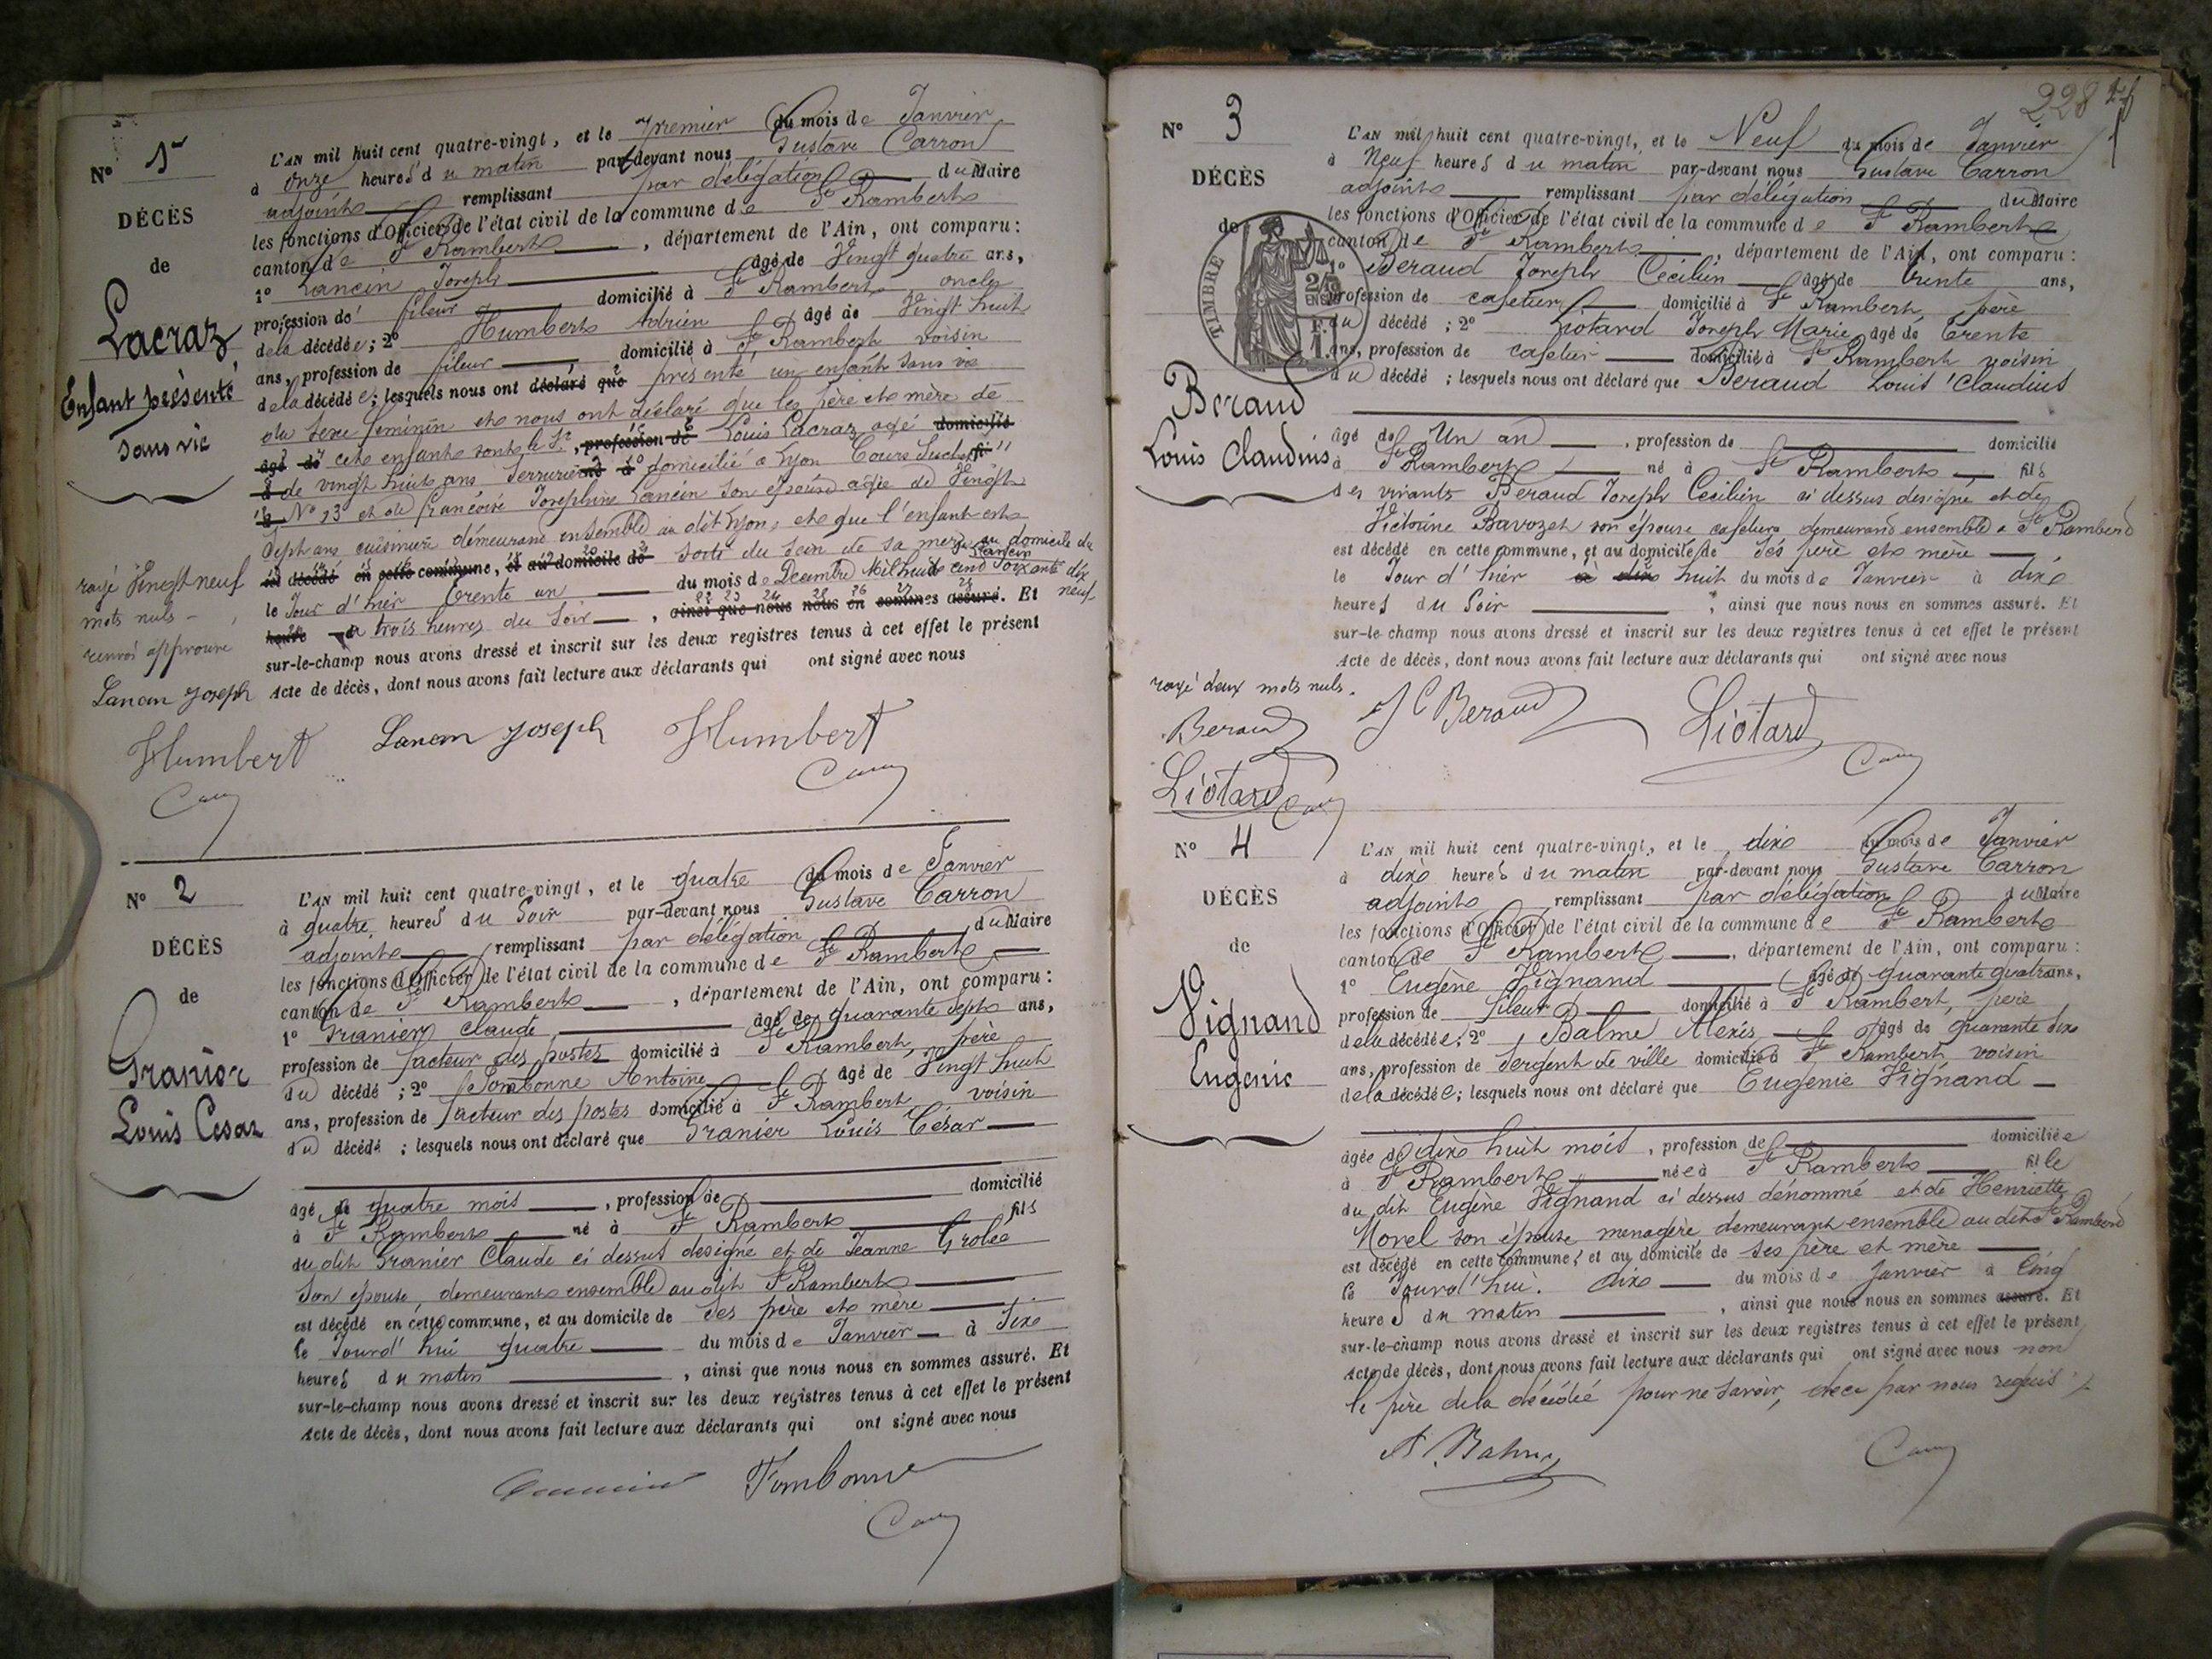 N° 1er
DÉCÈS
de
Lacraz
Enfant présenté
sans vie
L'AN mil huit cent quatre-vingt, et le premier du mois de Janvier
à onze heures du matin par-devant nous Gustave Carron
adjoint remplissant par délégation du Maire
les fonctions d'Officier de l'état civil de la commune de St Rambert
canton de St Rambert, département de l'Ain, ont comparu :
1° Lancin Joseph âgé de Vingt quatre ans,
profession de fileur domicilié à St Rambert oncle
de la décédée ; 2° Humbert Adrien âgé de Vingt huit
ans, profession de fileur domicilié à St Rambert voisin
de la décédée ; lesquels nous ont déclaré que présenté un enfant sans vie
du sexe féminin et nous ont déclaré que les père et mère de
âgé de cet enfant sont le Sr, profession de Louis Lacraz agé domicilié
à de vingt huit ans serrurier né à domicilié à Lyon Cours Suchet fi
N° 23 et de Françoise Josephine Lancin son épouse agée de Vingt
Sept ans cuisinière demeurant ensemble au dit Lyon, et que l'enfant est
est décédé en cette commune, et au domicile de sorti du sein de sa mère au domicile du
Sr Lancin
le Jour d'hier trente un du mois de Decembre Mil huit cent soixante dix
neuf
heure à trois heures du soir, ainsi que nous nous en sommes assuré. Et
sur-le-champ nous avons dressé et inscrit sur les deux registres tenus à cet effet le présent
Acte de décès, dont nous avons fait lecture aux déclarants qui ont signé avec nous
rayé Vingt neuf
mots nuls -
renvoi approuvé
Lancin Joseph
Humbert
Lancin Joseph Humbert
N° 2
DÉCÈS
de
Granier
Louis Cesar
L'AN mil huit cent quatre-vingt, et le quatre du mois de Janvier
à quatre heures du Soir par-devant nous Gustave Carron
adjoint remplissant par délégation du Maire
les fonctions d'Officier de l'état civil de la commune de St Rambert
canton de St Rambert, département de l'Ain, ont comparu :
1° Granier Claude âgé de quarante sept ans,
profession de facteur des postes domicilié à St Rambert, père
du décédé ; 2° Fombonne Antoine âgé de Vingt huit
ans, profession de facteur des postes domicilié à St Rambert voisin
du décédé ; lesquels nous ont déclaré que Granier Louis César
âgé de quatre mois, profession de domicilié
à St Rambert né à St Rambert fils
du dit Granier Claude ci dessus designé et de Jeanne Grolee
Son épouse, demeurant ensemble au dit St Rambert
est décédé en cette commune, et au domicile de ses père et mère
le Jourd'hui quatre du mois de Janvier à Dix
heures du matin, ainsi que nous nous en sommes assuré. Et
sur-le-champ nous avons dressé et inscrit sur les deux registres tenus à cet effet le présent
Acte de décès, dont nous avons fait lecture aux déclarants qui ont signé avec nous
Fombonne
228
N° 3
DÉCÈS
de
TIMBRE
Beraud
Louis Claudius
L'AN mil huit cent quatre-vingt, et le Neuf du mois de Janvier
à Neuf heures du matin par-devant nous Gustave Carron
adjoint remplissant par délégation du Maire
les fonctions d'Officier de l'état civil de la commune de St Rambert
canton de St Rambert, département de l'Ain, ont comparu :
1° Beraud Joseph Cecilien âgé de trente ans,
profession de cafetier domicilié à St Rambert, père
du décédé ; 2° Liotard Joseph Marie âgé de trente
ans, profession de cafetier domicilié à St Rambert voisin
du décédé ; lesquels nous ont déclaré que Beraud Louis Claudius
âgé de Un an, profession de domicilié
à St Rambert né à St Rambert fils
des vivants Beraud Joseph Cecilien ci dessus designé et de
Victorine Bavozet son épouse cafetière demeurant ensemble à St Rambert
est décédé en cette commune, et au domicile de ses père et mère
le Jour d'hier à dix huit du mois de Janvier à dix
heures du Soir, ainsi que nous nous en sommes assuré. Et
sur-le-champ nous avons dressé et inscrit sur les deux registres tenus à cet effet le présent
Acte de décès, dont nous avons fait lecture aux déclarants qui ont signé avec nous
rayé deux mots nuls.
Beraud
J C Beraud Liotard
Liotard
N° 4
DÉCÈS
de
Vignand
Eugenie
L'AN mil huit cent quatre-vingt, et le dix du mois de Janvier
à dix heures du matin par-devant nous Gustave Carron
adjoint remplissant par délégation du Maire
les fonctions d'Officier de l'état civil de la commune de St Rambert
canton de St Rambert, département de l'Ain, ont comparu :
1° Eugène Vignand âgé de quarante quatre ans,
profession de fileur domicilié à St Rambert, père
de la décédée ; 2° Balme Alexis âgé de quarante dix
ans, profession de Sergent de ville domicilié à St Rambert, voisin
de la décédée ; lesquels nous ont déclaré que Eugenie Vignand
âgée de dix huit mois, profession de domiciliée
à St Rambert née à St Rambert fille
du dit Eugène Vignand ci dessus dénommé et de Henriette
Morel son épouse menagère demeurant ensemble au dit St Rambert
est décédé en cette commune, et au domicile de ses père et mère
le Jourd'hui dix du mois de Janvier à Cinq
heures du matin, ainsi que nous nous en sommes assuré. Et
sur-le-champ nous avons dressé et inscrit sur les deux registres tenus à cet effet le présent
Acte de décès, dont nous avons fait lecture aux déclarants qui ont signé avec nous non
le père de la décédée pour ne savoir, de ce par nous requis